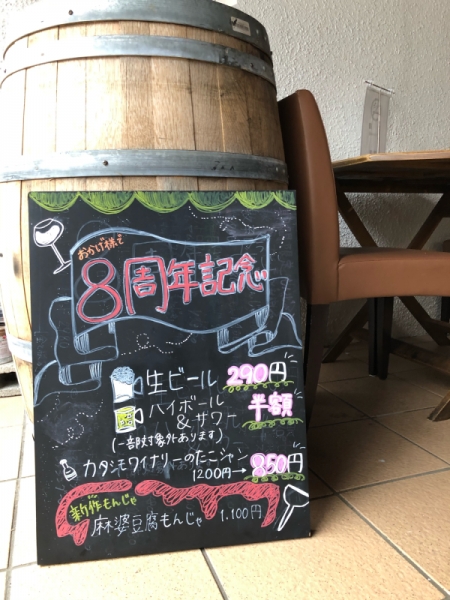 おかげ様で
8周年記念
生ビール 290円
ハイボール
&サワー 半額
(一部対象外あります)
カタシモワイナリーのたこシャン
1200円→850円
新作もんじゃ
麻婆豆腐もんじゃ 1,100円